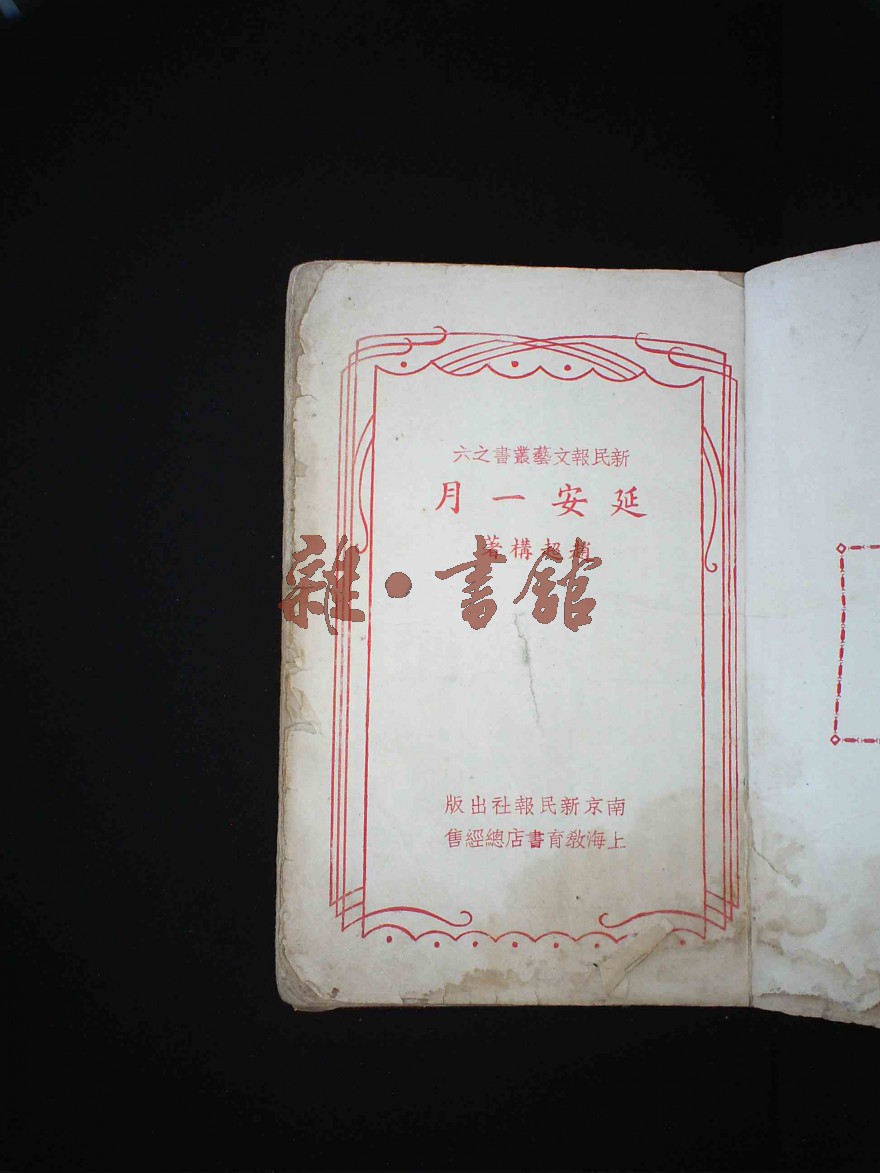 新民報文藝叢書之六
延安一月
趙超構著
雜·書館
南京新民報社出版
上海教育書店總經售